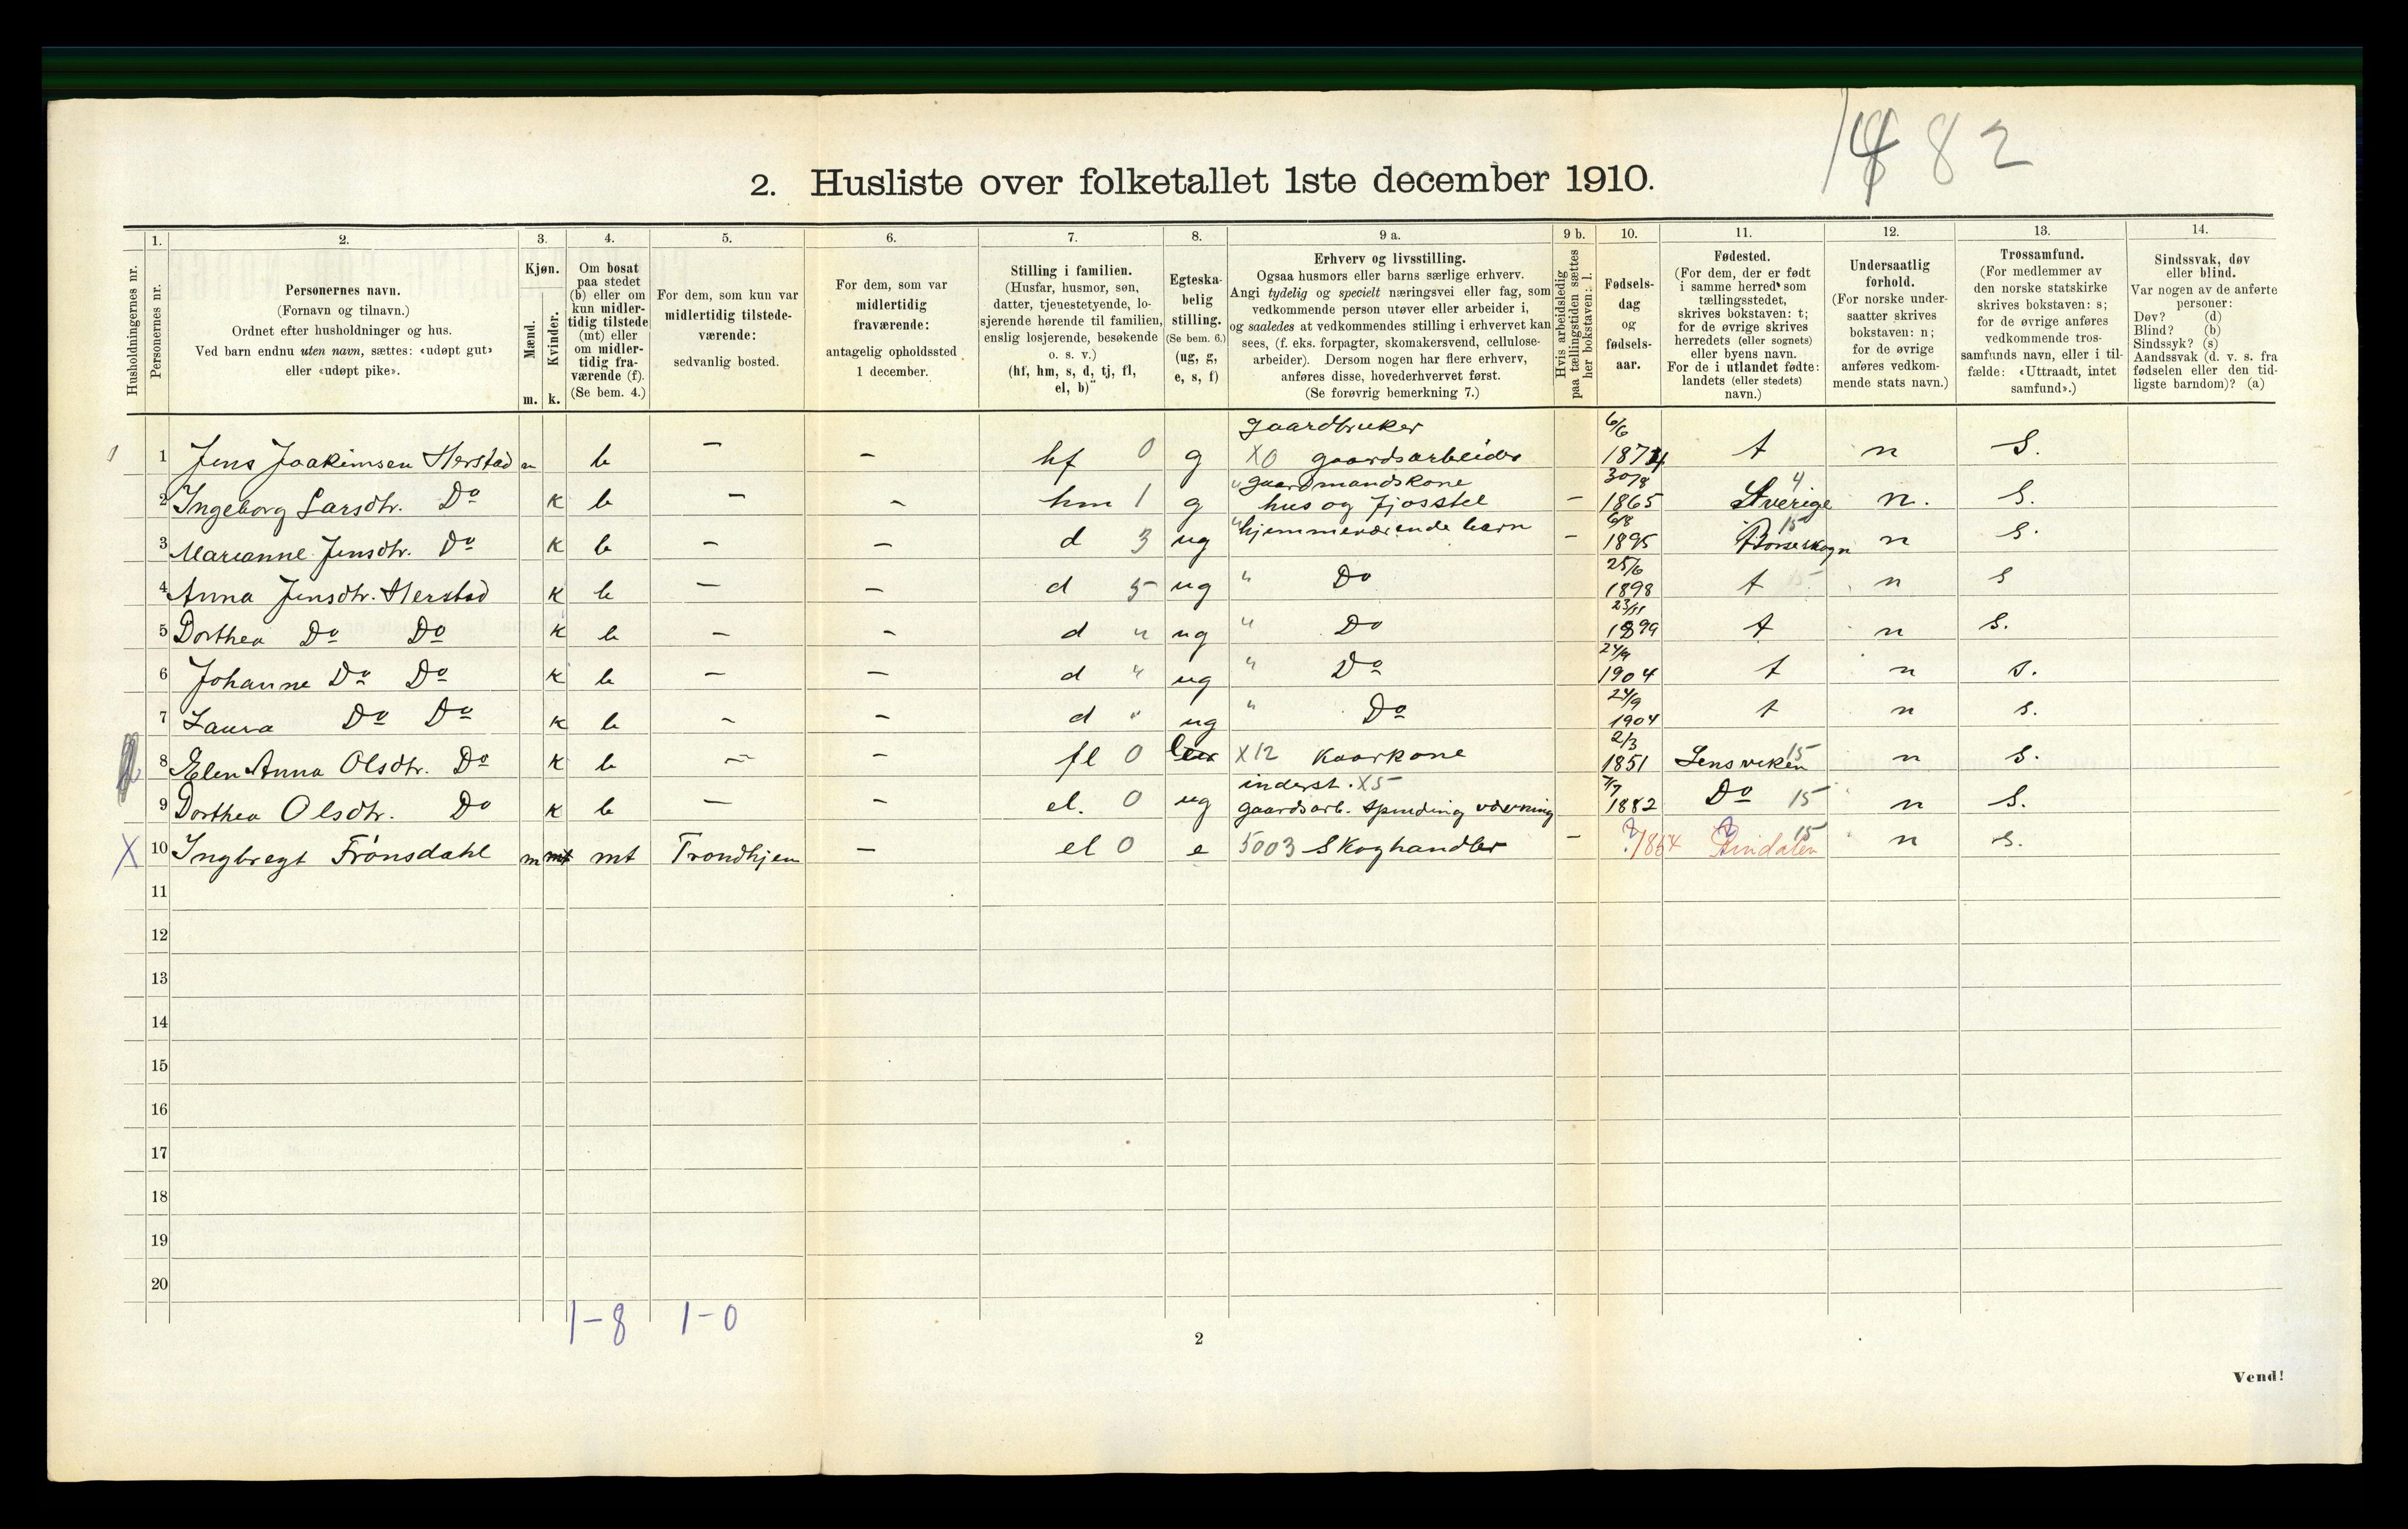 1482
2. Husliste over folketallet 1ste december 1910.
Husholdningernes nr.
1.
Personernes nr.
2.
Personernes navn.
(Fornavn og tilnavn.)
Ordnet efter husholdninger og hus.
Ved barn endnu uten navn, sættes: «udøpt gut»
eller «udøpt pike».
3.
Kjøn.
Mænd.
Kvinder.
m. k.
4.
Om bosat
paa stedet
(b) eller om
kun midler-
tidig tilstede
(mt) eller
om midler-
tidig fra-
værende (f).
(Se bem. 4.)
5.
For dem, som kun var
midlertidig tilstede-
værende:
sedvanlig bosted.
6.
For dem, som var
midlertidig
fraværende:
antagelig opholdssted
1 december.
7.
Stilling i familien.
(Husfar, husmor, søn,
datter, tjenestetyende, lo-
sjerende hørende til familien,
enslig losjerende, besøkende
o. s. v.)
(hf, hm, s, d, tj, fl,
el, b)
8.
Egteska-
belig
stilling.
(Se bem. 6.)
(ug, g,
e, s, f)
9 a.
Erhverv og livsstilling.
Ogsaa husmors eller barns særlige erhverv.
Angi tydelig og specielt næringsvei eller fag, som
vedkommende person utøver eller arbeider i,
og saaledes at vedkommendes stilling i erhvervet kan
sees, (f. eks. forpagter, skomakersvend, cellulose-
arbeider). Dersom nogen har flere erhverv,
anføres disse, hovederhvervet først.
(Se forøvrig bemerkning 7.)
9 b.
Hvis arbeidsledig
paa tællingstiden sættes
her bokstaven: l.
10.
Fødsels-
dag
og
fødsels-
aar.
11.
Fødested.
(For dem, der er født
i samme herred som
tællingsstedet,
skrives bokstaven: t;
for de øvrige skrives
herredets (eller sognets)
eller byens navn.
For de i utlandet fødte:
landets (eller stedets)
navn.)
12.
Undersaatlig
forhold.
(For norske under-
saatter skrives
bokstaven: n;
for de øvrige
anføres vedkom-
mende stats navn.)
13.
Trossamfund.
(For medlemmer av
den norske statskirke
skrives bokstaven: s;
for de øvrige anføres
vedkommende tros-
samfunds navn, eller i til-
fælde: «Uttraadt, intet
samfund».)
14.
Sindssvak, døv
eller blind.
Var nogen av de anførte
personer:
Døv? (d)
Blind? (b)
Sindssyk? (s)
Aandssvak (d. v. s. fra
fødselen eller den tid-
ligste barndom)? (a)
gaardbruker 6/6
1 1 Jens Joakimsen Herstad m b – – hf 0 g X0 gaardsarbeider 1874 t n S.
" gaardmandskone 30/8 4
2 Ingeborg Larsdtr. Do k b – – hm 1 g hus og fjosstel – 1865 Sverige n. S.
6/8 15
3 Marianne Jensdtr. Do k b – – d 3 ug " hjemmeværende barn – 1895 Børseskogn n S.
25/6
4 Anna Jensdtr. Herstad k b – – d 5 ug " Do 1898 t 15 n S
23/11
5 Dorthea Do Do k b – – d " ug " Do 1899 t n S.
24/9
6 Johanne Do Do k b – – d " ug " Do 1904 t n S.
24/9
7 Laura Do Do k b – – d " ug " Do 1904 t n S.
2/3
8 Elen Anna Olsdtr. Do k b – – fl 0 X12 Kaarkone 1851 Lensviken 15 n S.
inderst. X5 7/7
9 Dorthea Olsdtr. Do k b – – el. 0 ug gaardsarb. spinding vævning 1882 Do 15 n S.
X 10 Ingbregt Frønsdahl m mt mt Trondhjem – el 0 e 5003 Skoghandler – ? 1864 ? Rindalen 15 n S.
11
12
13
14
15
16
17
18
19
20
1-8 1-0
2
Vend!